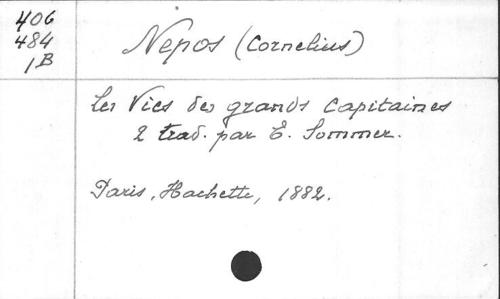 406
484
1B
Nepos (Cornelius)
Les Vies des grands Capitaines
2 trad. par E. Sommer.
Paris, Hachette, 1882.